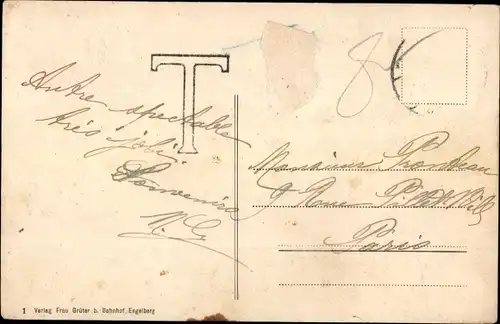 T
Autre spectable
très "joli"
Souvenirs
M. G.
8
Monsieur
9 Rue
Paris
1 Verlag Frau Grüter b. Bahnhof, Engelberg